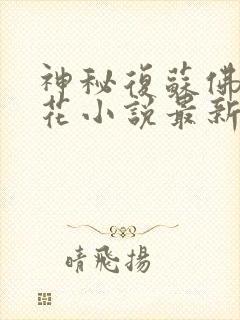 神秘復蘇佛
花小說最新
晴飛揚